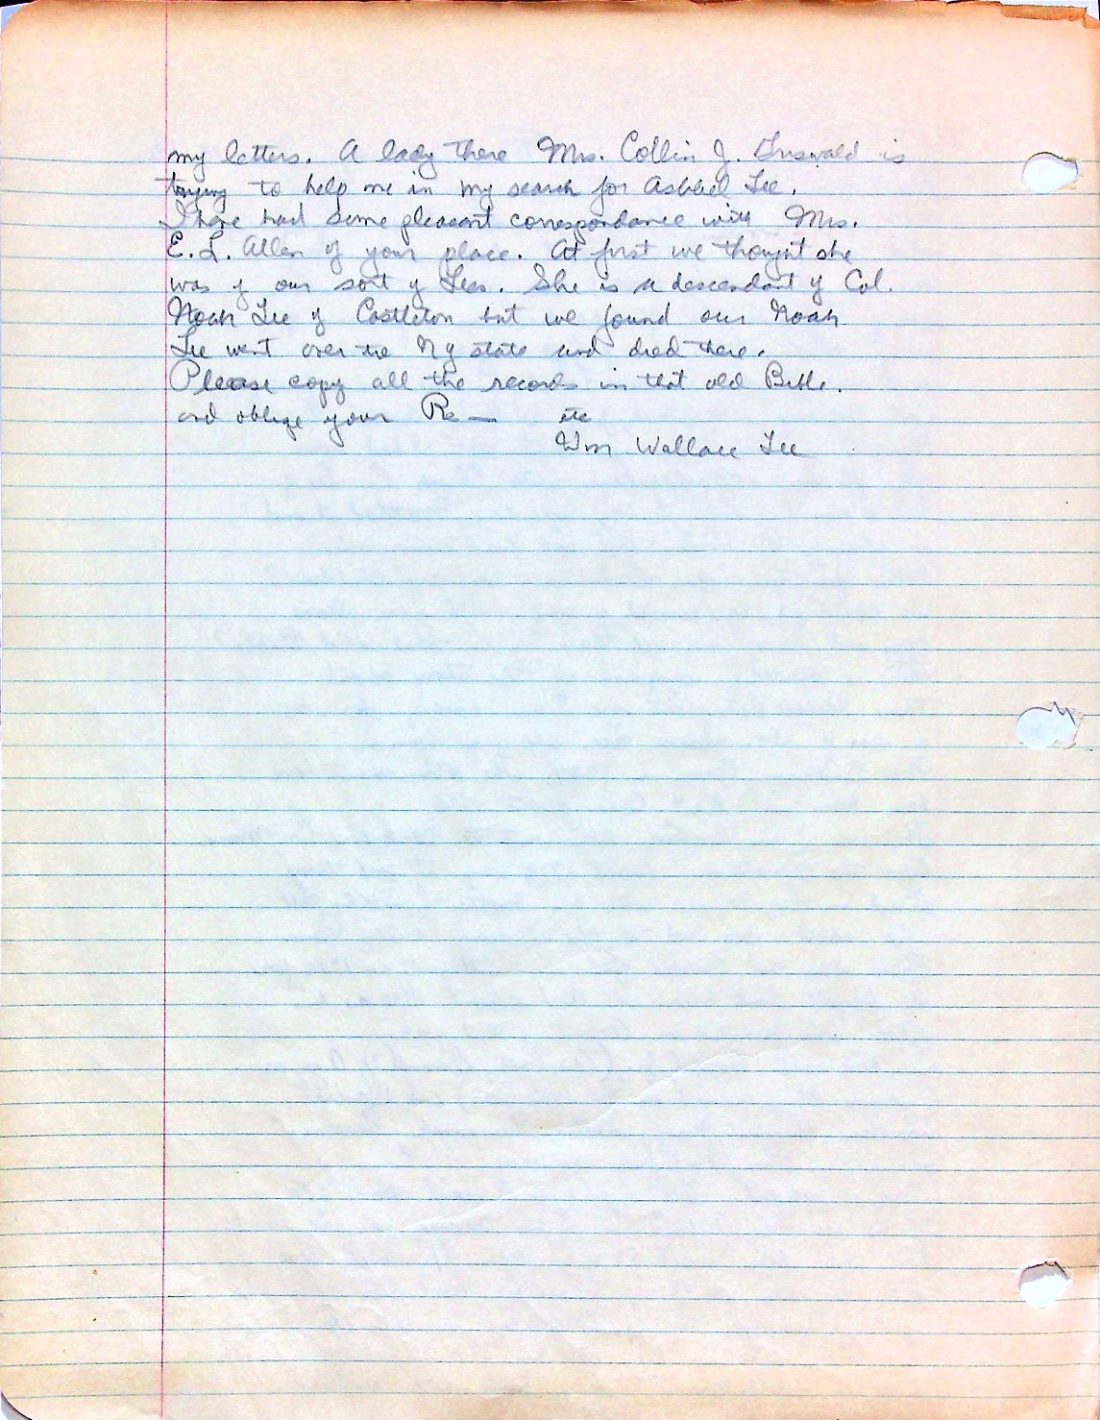 my letters. A lady there Mrs. Collin J. Griswald is
trying to help me in my search for Ashbel Lee.
I have had some pleasant correspondance with Mrs.
E. L. Allen of your place. At first we thought she
was of our sort of Lees. She is a descendant of Col.
Noah Lee of Castleton but we found our Noah
Lee went over the Ny state and died there.
Please copy all the records in that old Bible.
and oblige your Re— etc
Wm Wallace Lee